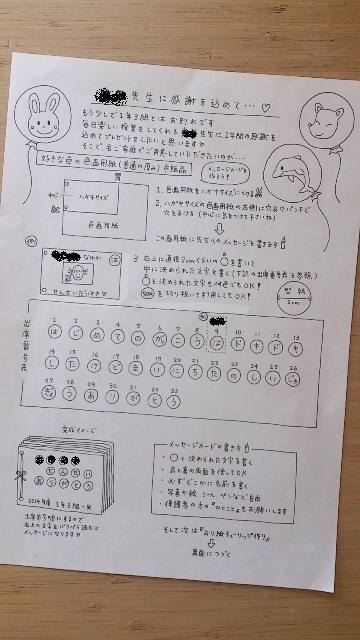 先生に感謝を込めて…♡
もう少しで1年3組とは お別れです
毎日楽しい授業をしてくれる 先生に、1年間の感謝を
込めてプレゼントをしたいと思います♡
そこで各ご家庭でご用意していただきたいのが…
好きな色の色画用紙(普通の厚み)市販品
メッセージカードを
作ろう!
中心
ハガキサイズ
色画用紙
1. 色画用紙をハガキサイズに
2. ハガキサイズの色画用紙の左側に穴あけパンチで
穴をあける (中心に気をつけて下さいね)
この画用紙に先生へのメッセージを書きます
例
なゆか
は
せんせいだいすき♡
3. 右上に直径2cmくらいの○を書いて
中に決められた文字を書く(下記の出席番号表を参照)
○と決められた文字も何色でもOK!
を切り抜いて利用してもOK!
2cm
出席番号表
例
1 2 3 4 5 6 7 8 9 10 11 12 13
は じ め て の が っ こ う は ド キ ド キ
14 15 16 17 18 19 20 21 22 23 24 25 26
し た け ど ま い に ち た の し い じゅ
27 28 29 30 31 32 33
ぎょ う あ り が と う
完成イメージ
せんせい
ありがとう
2014年度 1年3組一同
出席番号順にするので
右上の文字をパラパラ読むと
メッセージになります♡
メッセージカードの書き方
・○と決められた文字を書く
・表と裏の両面を使ってOK
・必ずどこかに名前を書く
・写真や絵、シール、ペンなど自由
・保護者の方の『ひとこと』もお願いします
そして次は『おり紙チューリップ作り』
裏面につづく